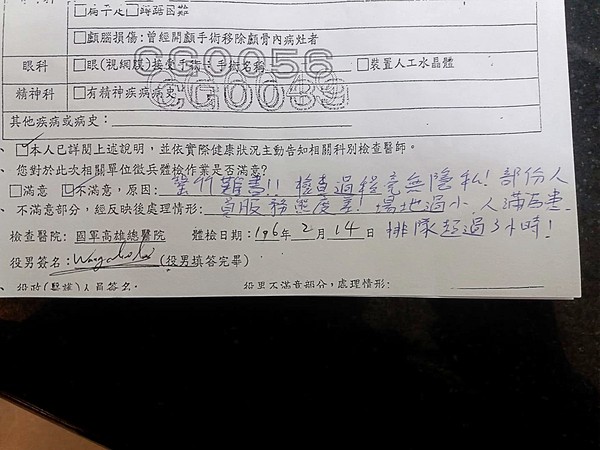 □扁平足□蹲踞困難
□顱腦損傷:曾經開顱手術移除顱骨內病灶者
眼科 □眼(視網膜)接受手術:手術名稱 □裝置人工水晶體
CG0056
精神科 □有精神疾病病史
CG0039
其他疾病或病史:
、□本人已詳閱上述說明,並依實際健康狀況主動告知相關科別檢查醫師。
、您對於此次相關單位徵兵體檢作業是否滿意?
□滿意 □不滿意,原因:罄竹難書!! 檢查過程竟無隱私! 部份人
、不滿意部分,經反映後處理情形:員服務態度差! 場地過小、人滿為患、
檢查醫院:國軍高雄總醫院 體檢日期:106年2月14日 排隊超過3小時!
役男簽名: (役男填答完畢)
、役政(醫護)人員簽名: 役男不滿意部分,處理情形: